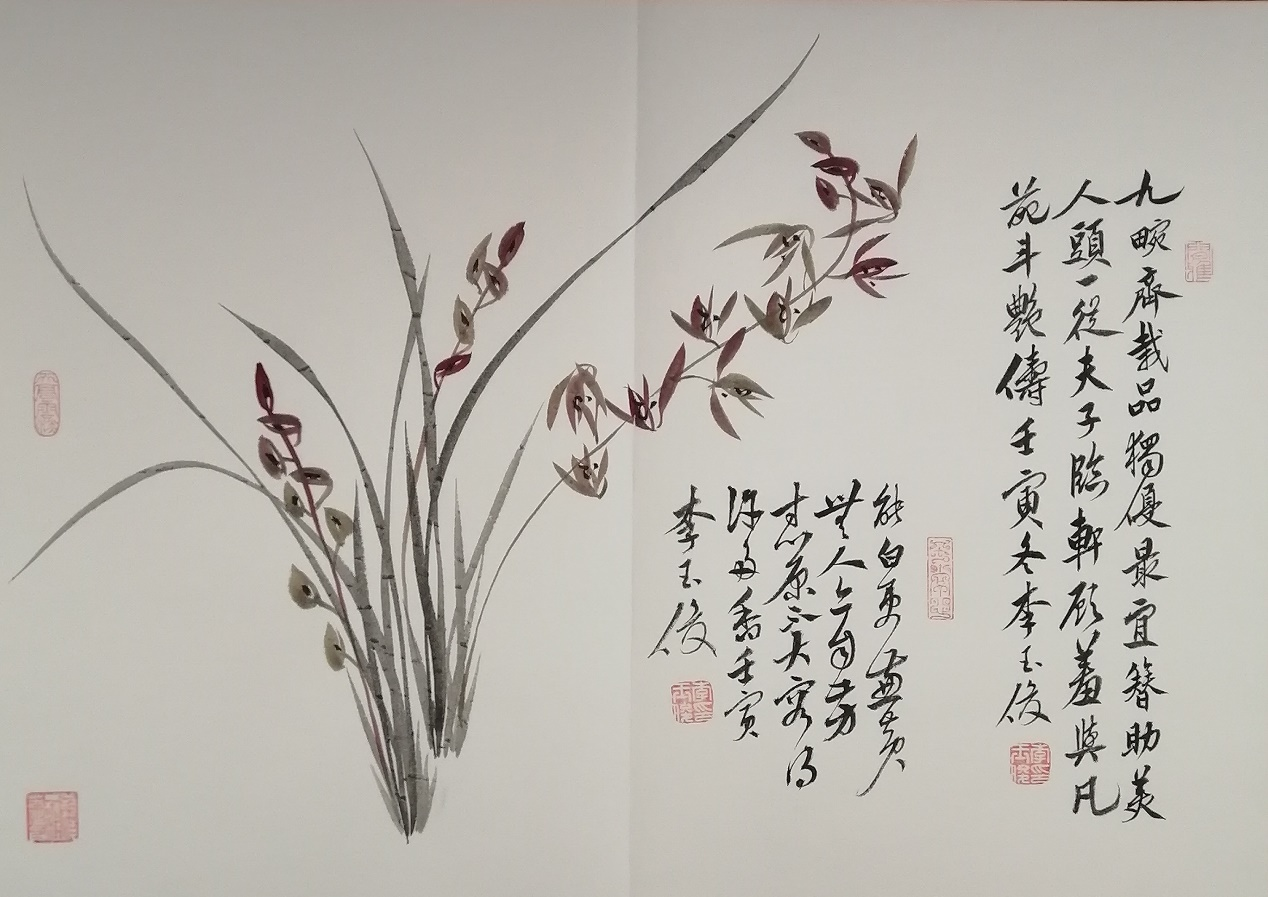 九畹齊栽品獨優最宜簪助美
人頭一從夫子臨軒顧羞與凡
葩斗艷儔壬寅冬李玉俊
能白更兼黄
無人亦自芳
寸心原不大容得
許多香壬寅
李玉俊